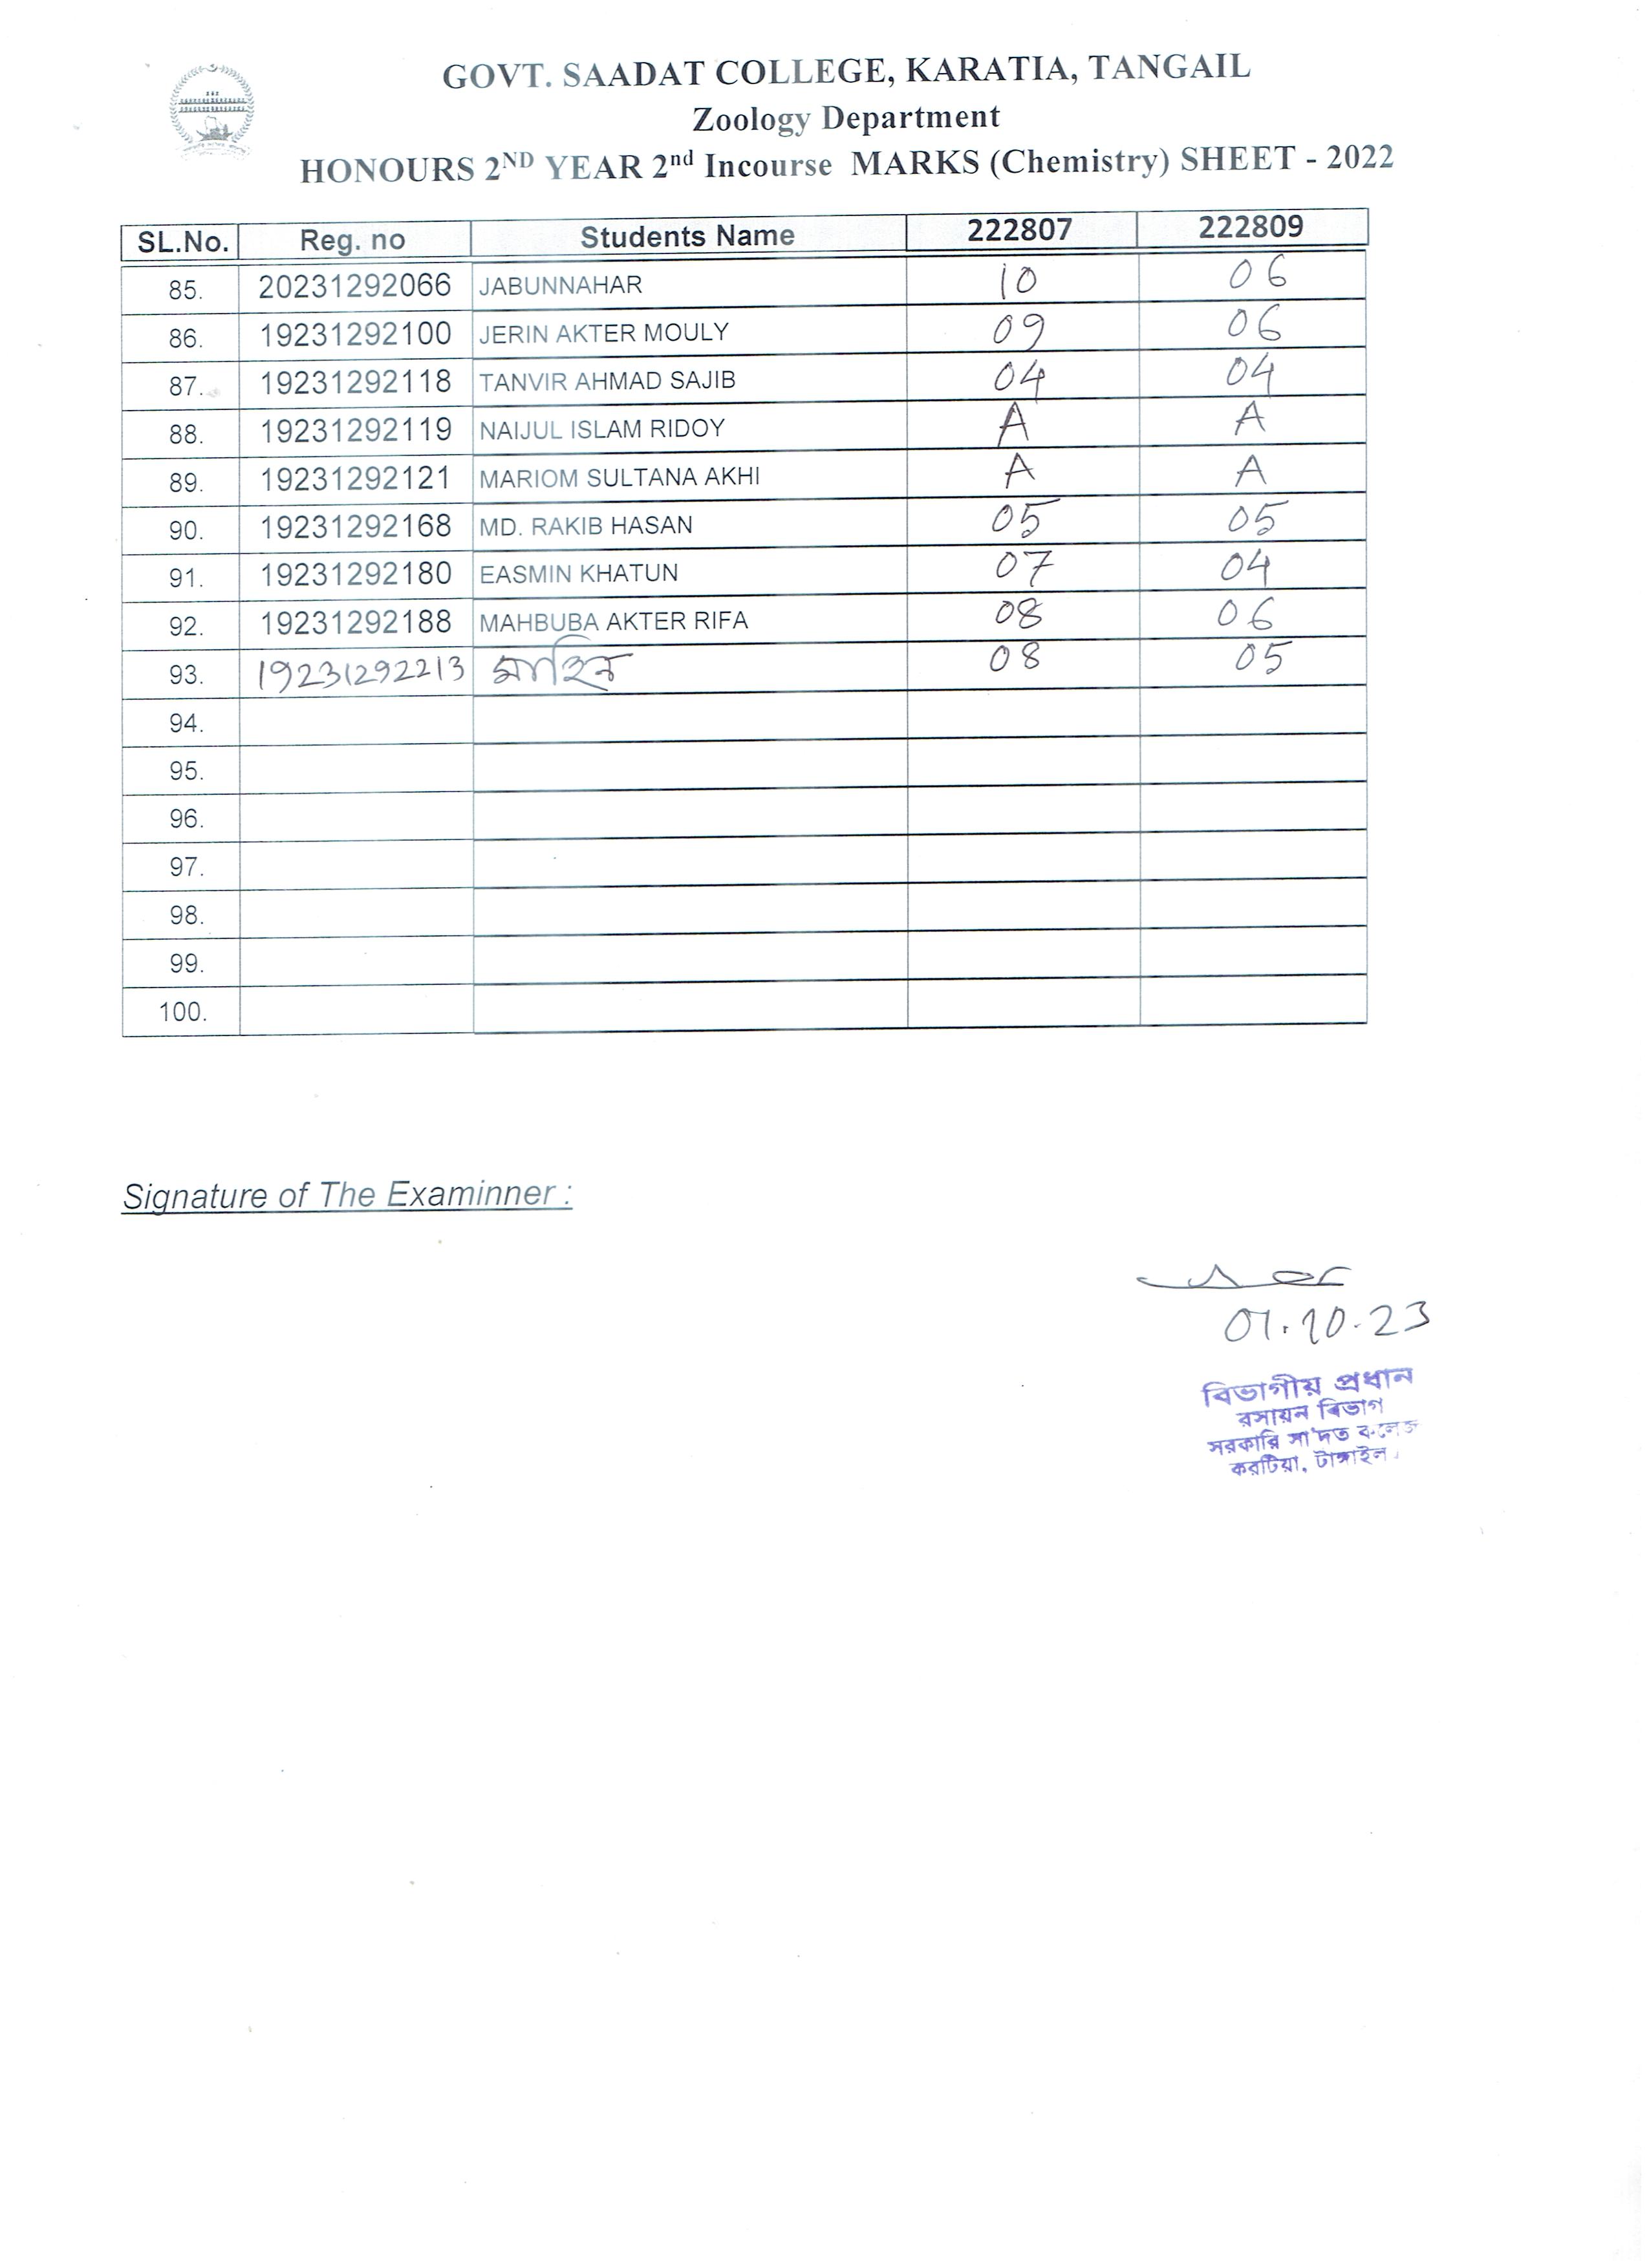 GOVT. SAADAT COLLEGE, KARATIA, TANGAIL
Zoology Department
HONOURS 2ND YEAR 2nd Incourse MARKS (Chemistry) SHEET - 2022
SL.No. Reg. no Students Name 222807 222809
85. 20231292066 JABUNNAHAR 10 06
86. 19231292100 JERIN AKTER MOULY 09 06
87. 19231292118 TANVIR AHMAD SAJIB 04 04
88. 19231292119 NAIJUL ISLAM RIDOY A A
89. 19231292121 MARIOM SULTANA AKHI A A
90. 19231292168 MD. RAKIB HASAN 05 05
91. 19231292180 EASMIN KHATUN 07 04
92. 19231292188 MAHBUBA AKTER RIFA 08 06
93. 19231292213 08 05
94.
95.
96.
97.
98.
99.
100.
Signature of The Examinner :
01.10.23
বিভাগীয় প্রধান
রসায়ন বিভাগ
সরকারি সা'দত কলেজ
করটিয়া, টাঙ্গাইল।